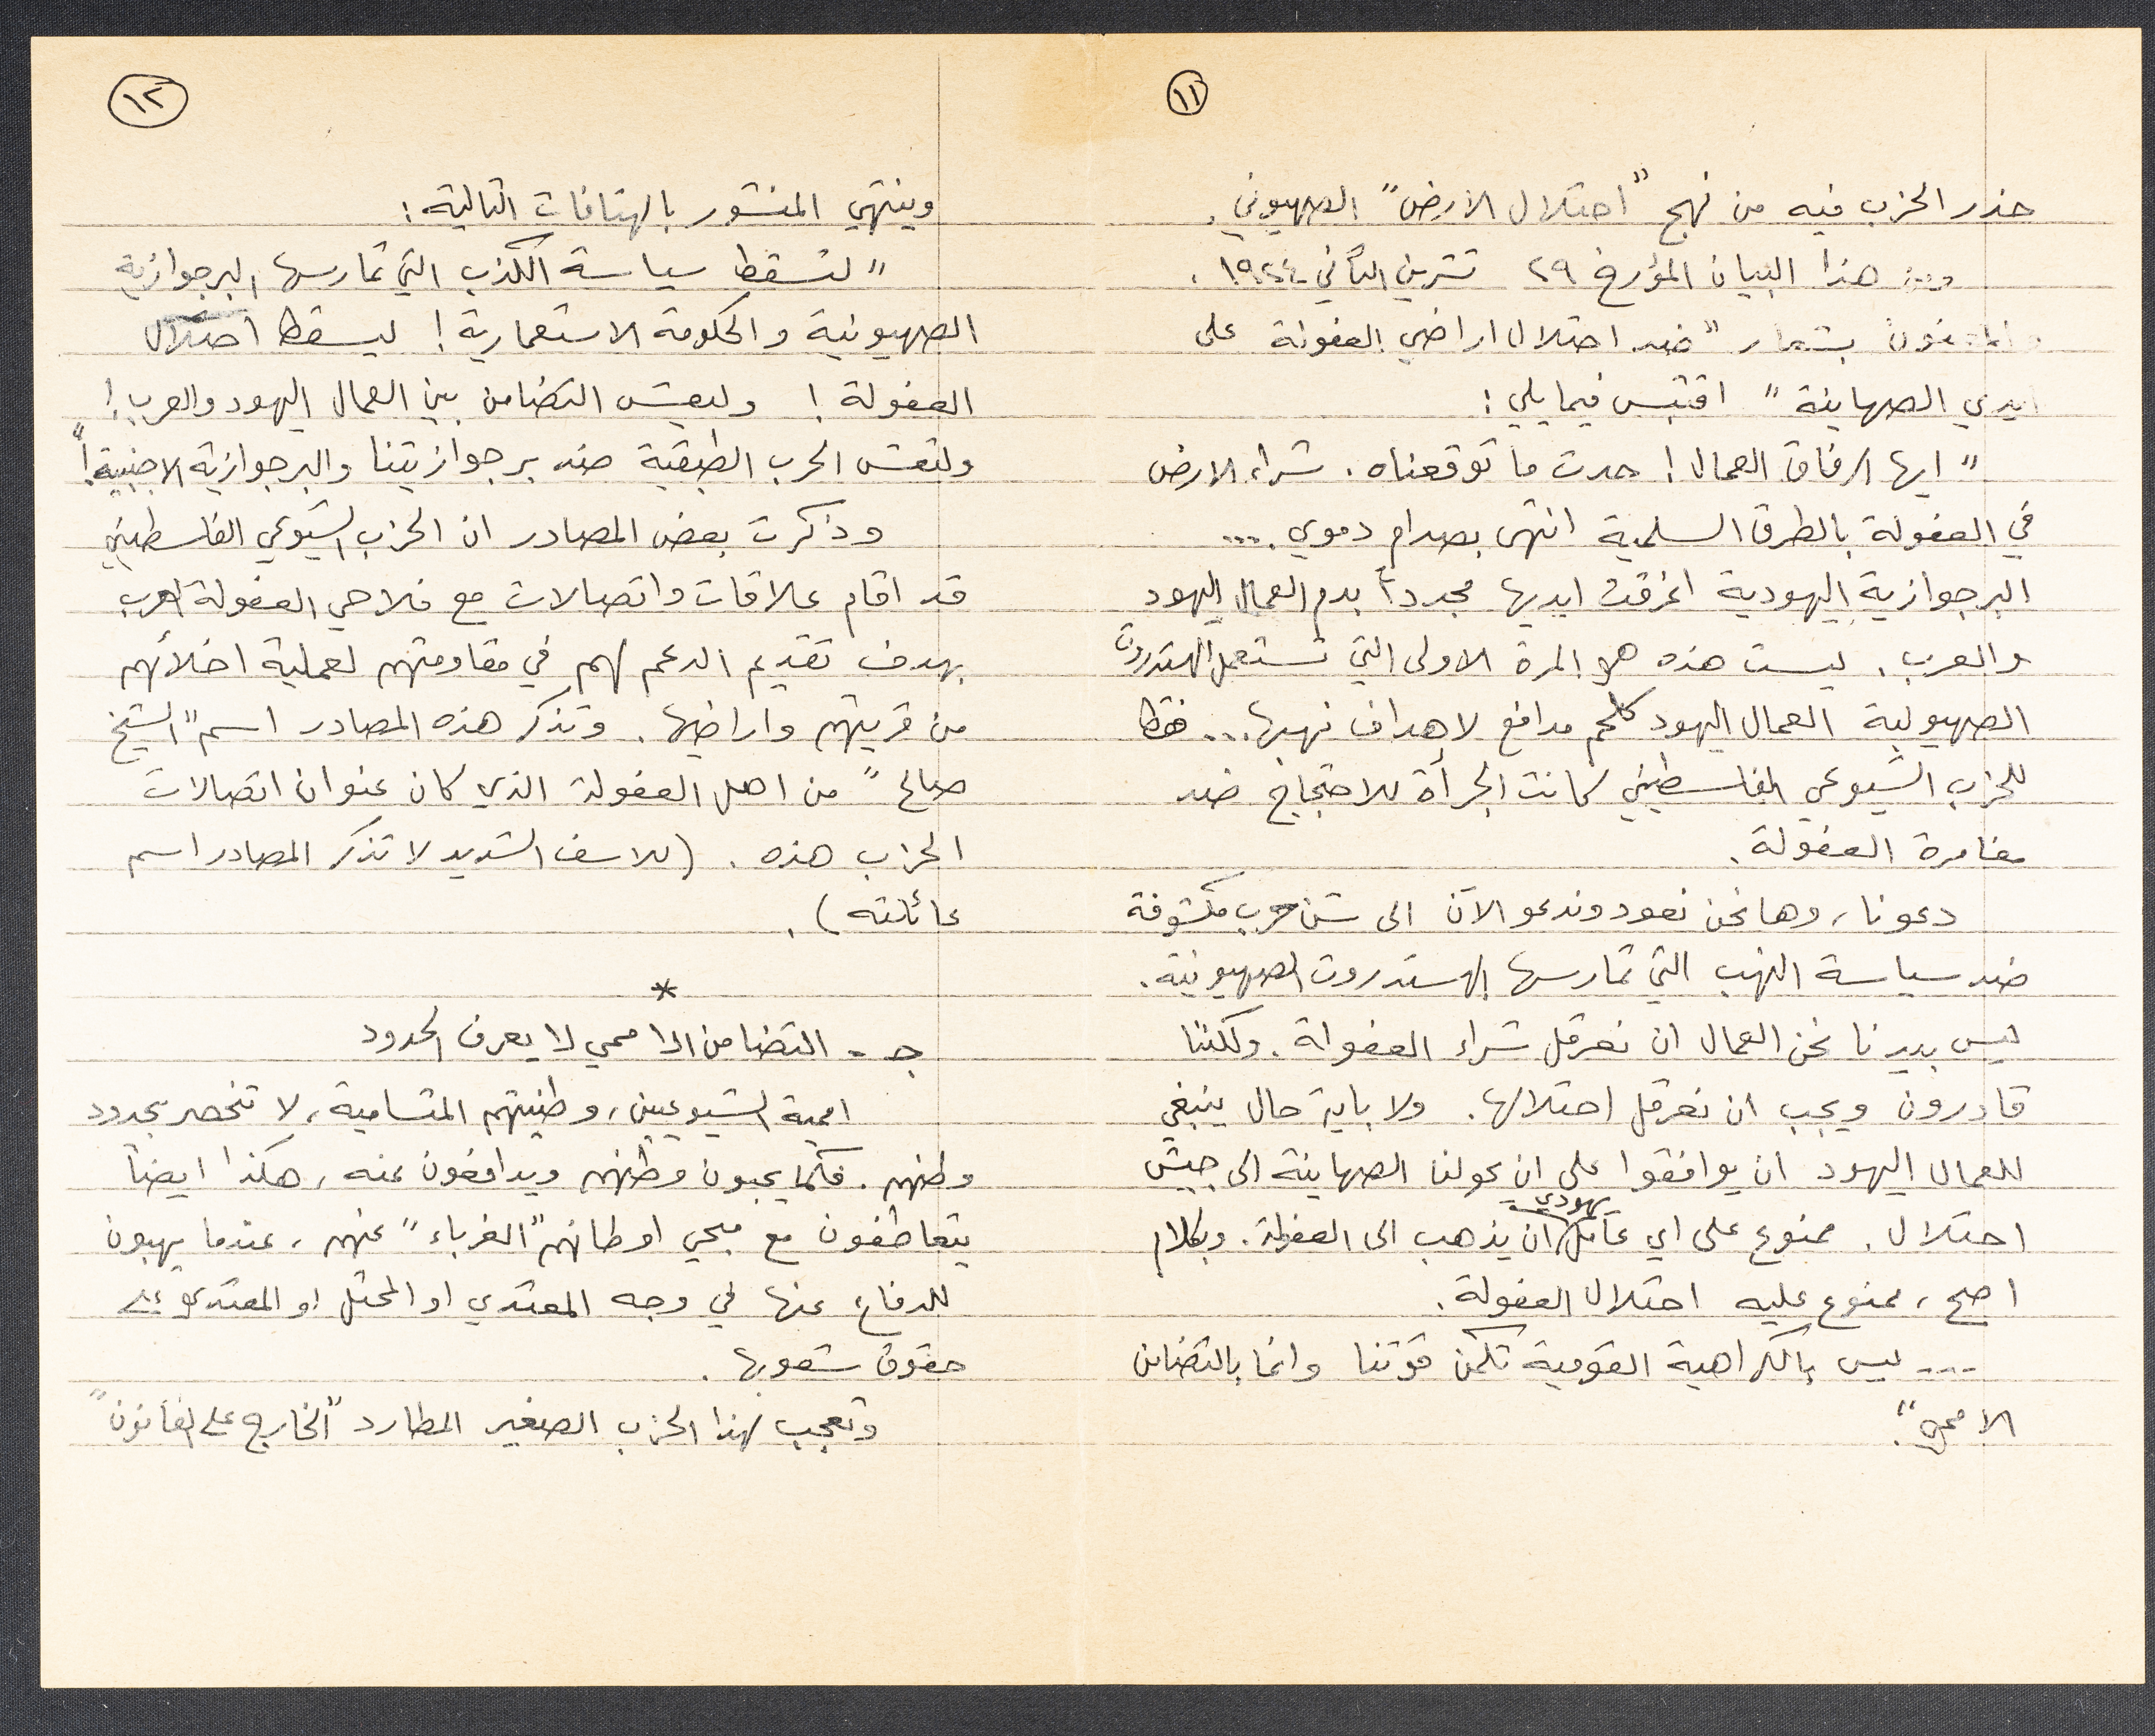 ١١
حذر الحزب فيه من نهج "احتلال الارض" الصهيوني.
ومن هذا البيان المؤرخ ٢٩ تشرين الثاني ١٩٢٤،
والمعنون بشعار "ضد احتلال اراضي العفولة على
ايدي الصهاينة" اقتبس فيما يلي:
"ايها الرفاق العمال! حدث ما توقعناه. شراء الارض
في العفولة بالطرق السلمية انتهى بصدام دموي....
البرجوازية اليهودية اغرقت ايديها مجدداً بدم العمال اليهود
والعرب. ليست هذه هي المرة الاولى التي تستعمل الهستدروت
الصهيونية العمال اليهود كلحم مدافع لاهداف نهبها... فقط
للحزب الشيوعي الفلسطيني كانت الجرأة للاحتجاج ضد
مغامرة العفولة.
دعونا، وها نحن نعود وندعو الآن الى شن حرب مكشوفة
ضد سياسة النهب التي تمارسها الهستدروت الصهيونية.
ليس بيدنا نحن العمال ان نعرقل شراء العفولة. ولكننا
قادرون ويجب ان نعرقل احتلالها. ولا باية حال ينبغي
للعمال اليهود ان يوافقوا على ان يحولنا الصهاينة الى جيش
احتلال. ممنوع على اي عامل يهودي ان يذهب الى العفولة. وبكلام
اصح، ممنوع عليه احتلال العفولة.
.... ليس بالكراهية القومية تكمن قوتنا وانما بالتضامن
الاممي".
١٢
وينتهي المنشور بالهتافات التالية:
"لتسقط سياسة الكذب التي تمارسها البرجوازية
الصهيونية والحكومة الاستعمارية! ليسقط احتلال
العفولة! وليعش التضامن بين العمال اليهود والعرب!
ولتعش الحرب الطبقية ضد برجوازيتنا والبرجوازية الاجنبية!"
وذكرت بعض المصادر ان الحزب الشيوعي الفلسطيني
قد اقام علاقات واتصالات مع فلاحي العفولة العرب
بهدف تقديم الدعم لهم في مقاومتهم لعملية اخلائهم
من قريتهم واراضيها. وتذكر هذه المصادر اسم "الشيخ
صالح" من اهل العفولة الذي كان عنوان اتصالات
الحزب هذه. (للاسف الشديد لا تذكر المصادر اسم
عائلته).
*
جـ - التضامن الاممي لا يعرف الحدود
اممية الشيوعيين، وطنيتهم المتسامية، لا تنحصر بحدود
وطنهم. فكما يحبون وطنهم ويدافعون عنه، هكذا ايضاً
يتعاطفون مع محبي اوطانهم "الغرباء" عنهم، عندما يهبون
للدفاع عنها في وجه المعتدي او المحتل او المعتدي على
حقوق شعوبها.
وتعجب لهذا الحزب الصغير المطارد "الخارج على القانون"